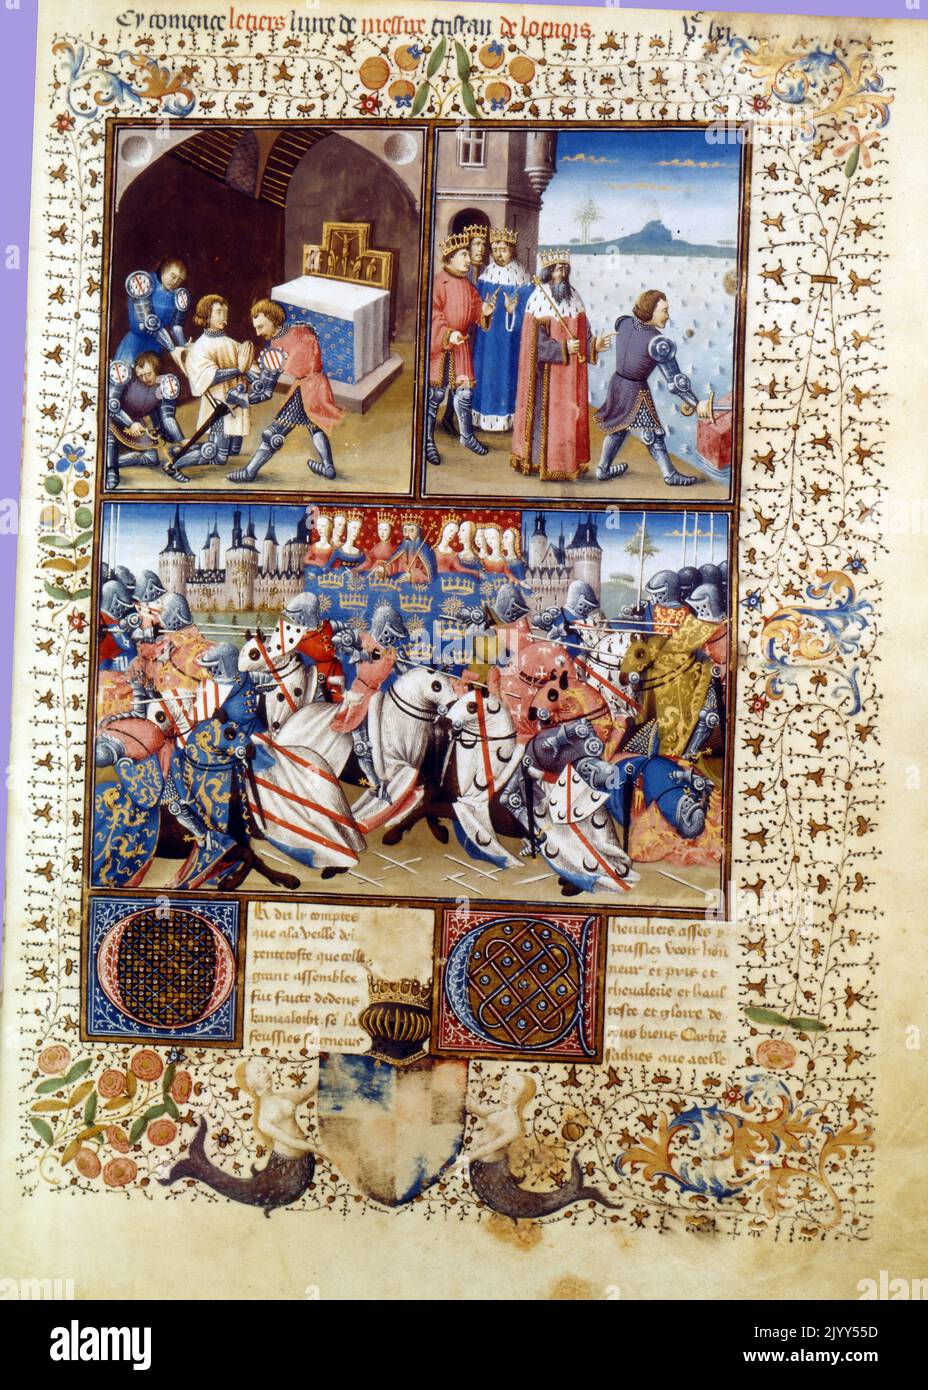 Cy comence le tiers liure de messire tristan de loenois. Vc lxj
Or dit ly comptes
que a la veille de
pentecoste que celle
grant assemblee
fut faicte dedens
kamaalotht. Se la
feussies seigneur
Chevaliers asses y
peussies veoir hon
neur et pris et
chevalerie et haul
tesse et gloire de
tous biens Car bie
sachies que a celle
alamy
Image ID: 2JYY55D
www.alamy.com